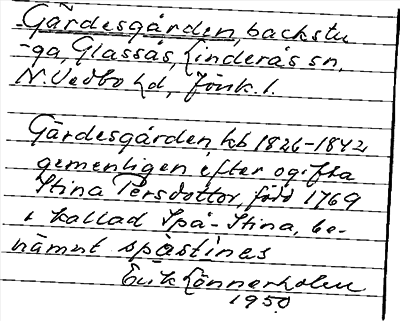 Gärdesgården, backstu
-ga, Glassås, Linderås sn,
N. Vedbo hd, Jönk. l.
Gärdesgården, kb 1826-1842
gemenligen efter ogifta
Stina Persdotter, född 1769
o kallad Spå-Stina, be-
nämnt spåstines
Erik Lönnerholm
1950.